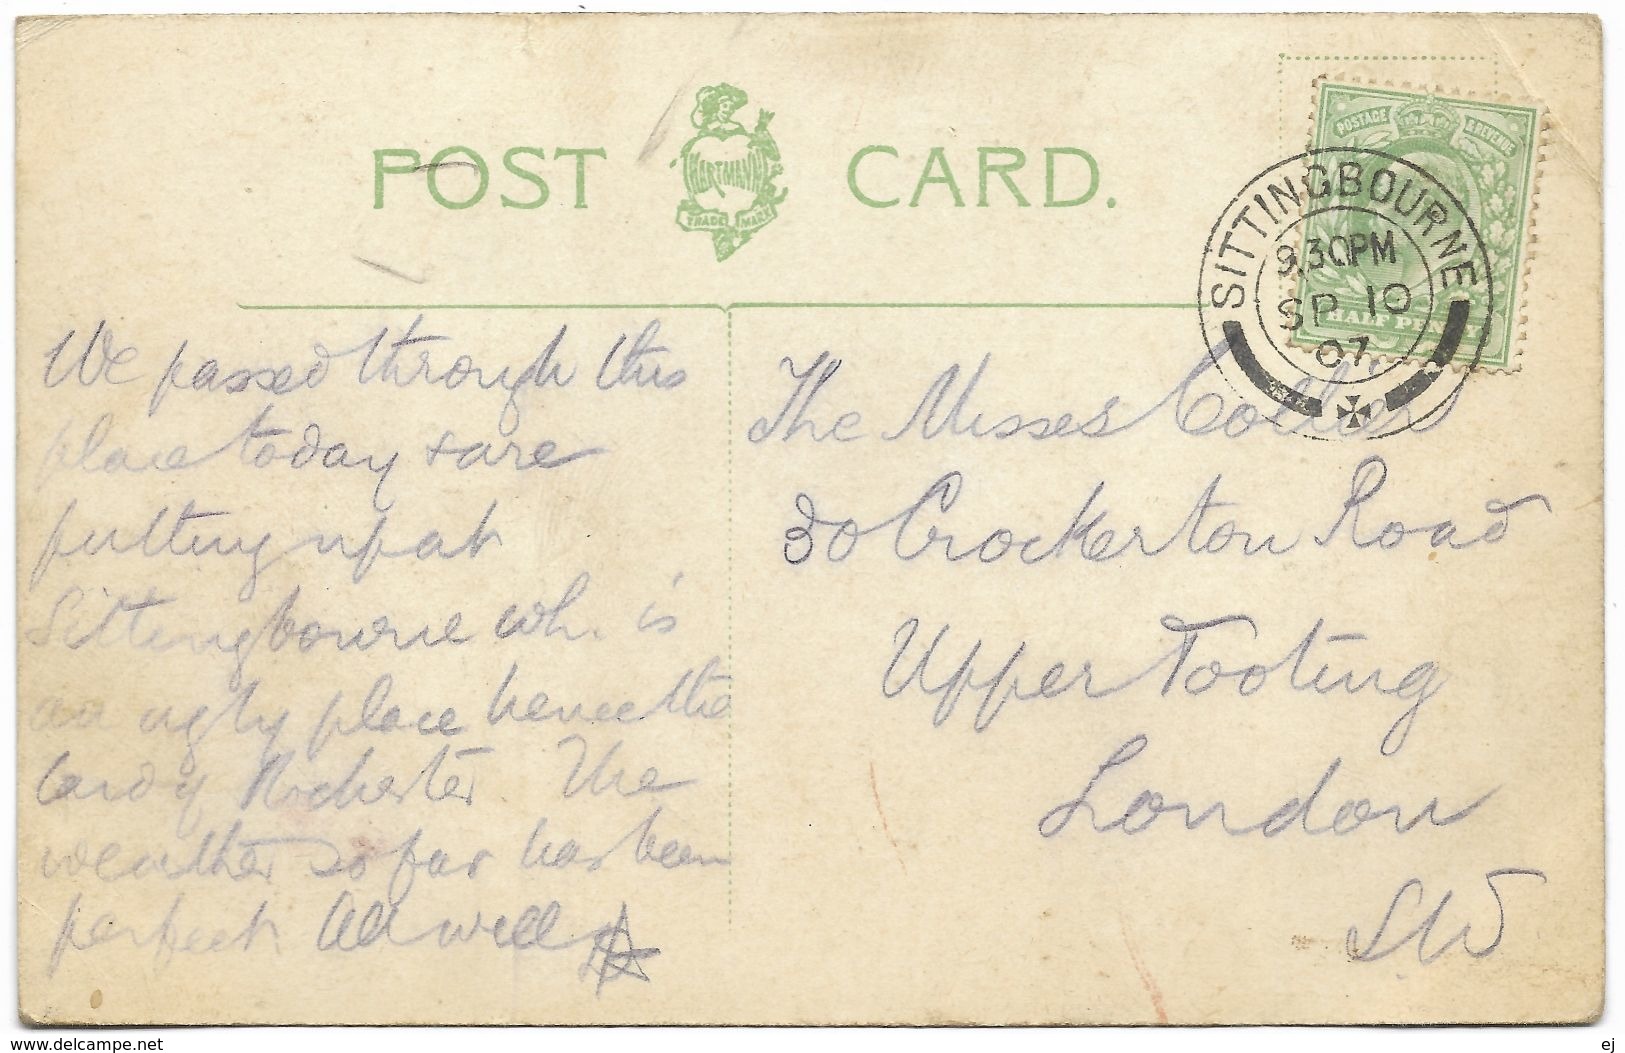 POST CARD.
HARTMANN
TRADE MARK
POSTAGE & REVENUE
HALF PENNY
SITTINGBOURNE
9.30PM
SP 10
07
We passed through this
place today & are
putting up at
Sittingbourne wh. is
an ugly place hence the
card of Rochester. The
weather so far has been
perfect All well
The Misses Collier
30 Crockerton Road
Upper Tooting
London
SW
www.delcampe.net
ej